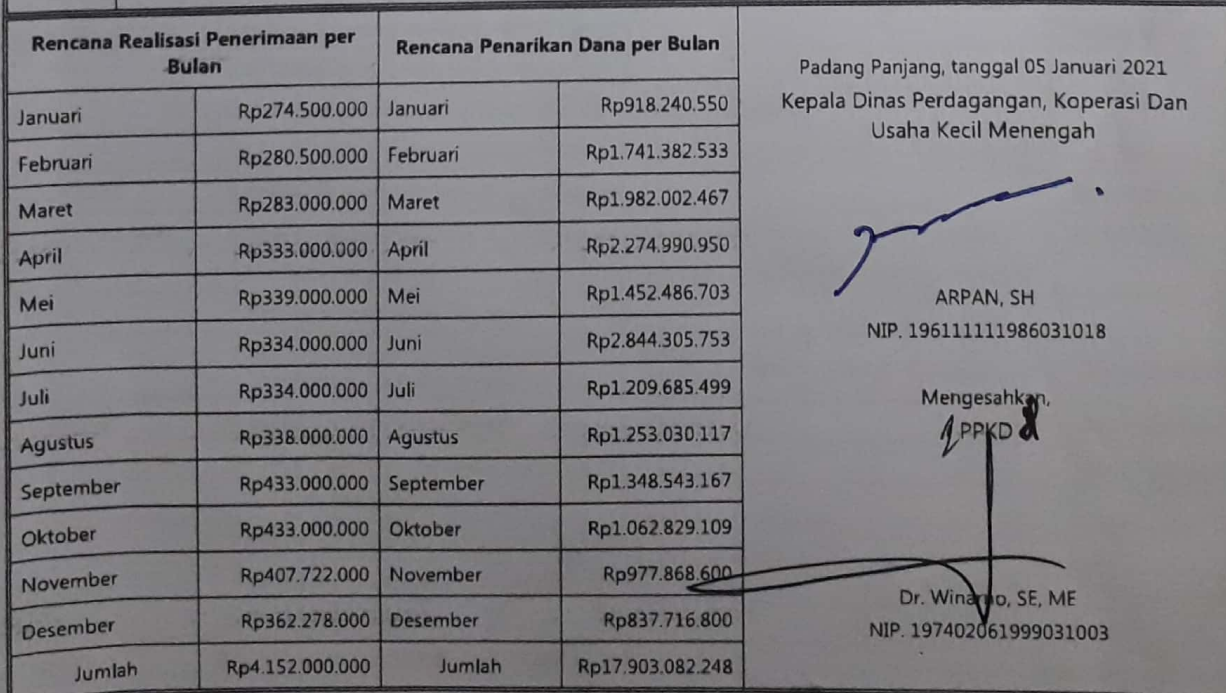 Rencana Realisasi Penerimaan per Bulan
Rencana Penarikan Dana per Bulan
Januari Rp274.500.000 Januari Rp918.240.550
Februari Rp280.500.000 Februari Rp1.741.382.533
Maret Rp283.000.000 Maret Rp1.982.002.467
April Rp333.000.000 April Rp2.274.990.950
Mei Rp339.000.000 Mei Rp1.452.486.703
Juni Rp334.000.000 Juni Rp2.844.305.753
Juli Rp334.000.000 Juli Rp1.209.685.499
Agustus Rp338.000.000 Agustus Rp1.253.030.117
September Rp433.000.000 September Rp1.348.543.167
Oktober Rp433.000.000 Oktober Rp1.062.829.109
November Rp407.722.000 November Rp977.868.600
Desember Rp362.278.000 Desember Rp837.716.800
Jumlah Rp4.152.000.000 Jumlah Rp17.903.082.248
Padang Panjang, tanggal 05 Januari 2021
Kepala Dinas Perdagangan, Koperasi Dan
Usaha Kecil Menengah
ARPAN, SH
NIP. 196111111986031018
Mengesahkan,
PPKD
Dr. Winarno, SE, ME
NIP. 197402061999031003